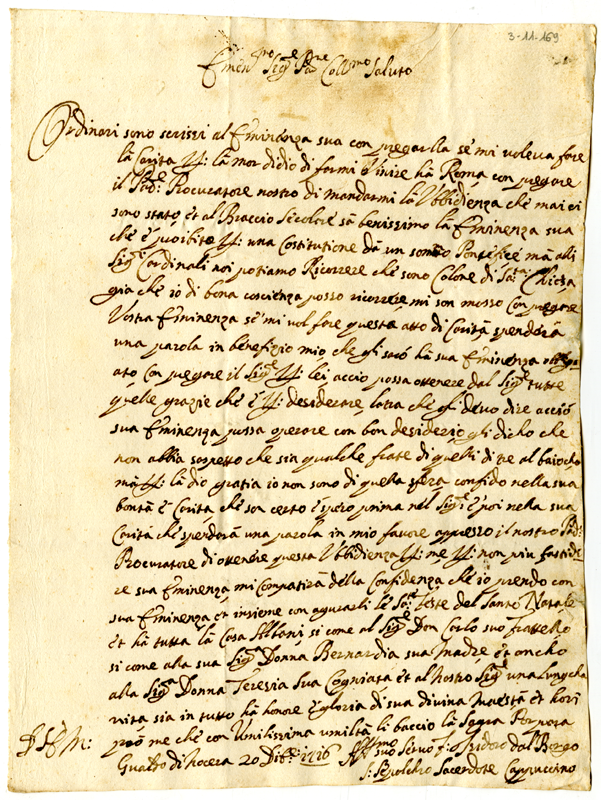 3-11-169
Emin.mo Sig.e P.re Coll.mo Saluto
Ordinari sono scrissi al Eminenza sua con pregarlla se mi voleva fare
la Carita p: la mor didio di farmi Vinire hà Roma con pregare
il Pad.e Procuratore nostro di mandarmi la Vbbidienza che mai ci
sono stato, et al Braccio Secolare sà benissimo la Eminenza sua
che è proibito p: una Costitutione dà un somo Pontefice mà alli
Sig.i Cardinali noi potiamo Ricorrere che sono Colone di S.ta Chiesa
gia che io di bona coscienza posso ricorrere mi son mosso con pregare
Vostra Eminenza se mi vol fare questo atto di Carità spenderà
una parola in benefizio mio che gli sarò hà sua Eminenza obliga
ato con pregare il Sig.e p: lei accio possa ottenere dal Sig.e tutte
quelle grazie che è p: desiderare, latra che gli devo dire acciò
sua Eminenza possa operare con bon desiderio gli dicho che
non abbia sospetto che sia qualche frate di quelli di re al baiocho
mà p: la dio gratia io non sono di quella sfera confido nella sua
bontà è Carità che son certo è spero prima nel Sig.e è poi nella sua
Carità che spenderà una parola in mio favore appresso il nostro Pad:
Procuratore di ottenere questa Vbbidienza p: me p: non piu fastidi
re sua Eminenza mi Compatirà della Confidenza che io prendo con
sua Eminenza et insieme con agurarli le S.te Feste del Santo Natale
et hà tutta la Casa Albani si come al Sig.e Don Carlo suo Frattello
si come alla sua Sig.a Donna Bernardia sua Madre et ancho
alla Sig.a Donna Teresia sua Cogniata et al Nostro Sig.e una Lungcha
vita sia in tutto hà honore è gloria di sua divina Maestà et hori
prò me che con Umilissima umiltà li baccio la Sagra Porpora
Gualto di nocera 20 Dib.e 1716 suo Servo f: Isidoro dal Borgo
S: Spolchro Sacerdote Cappuccino